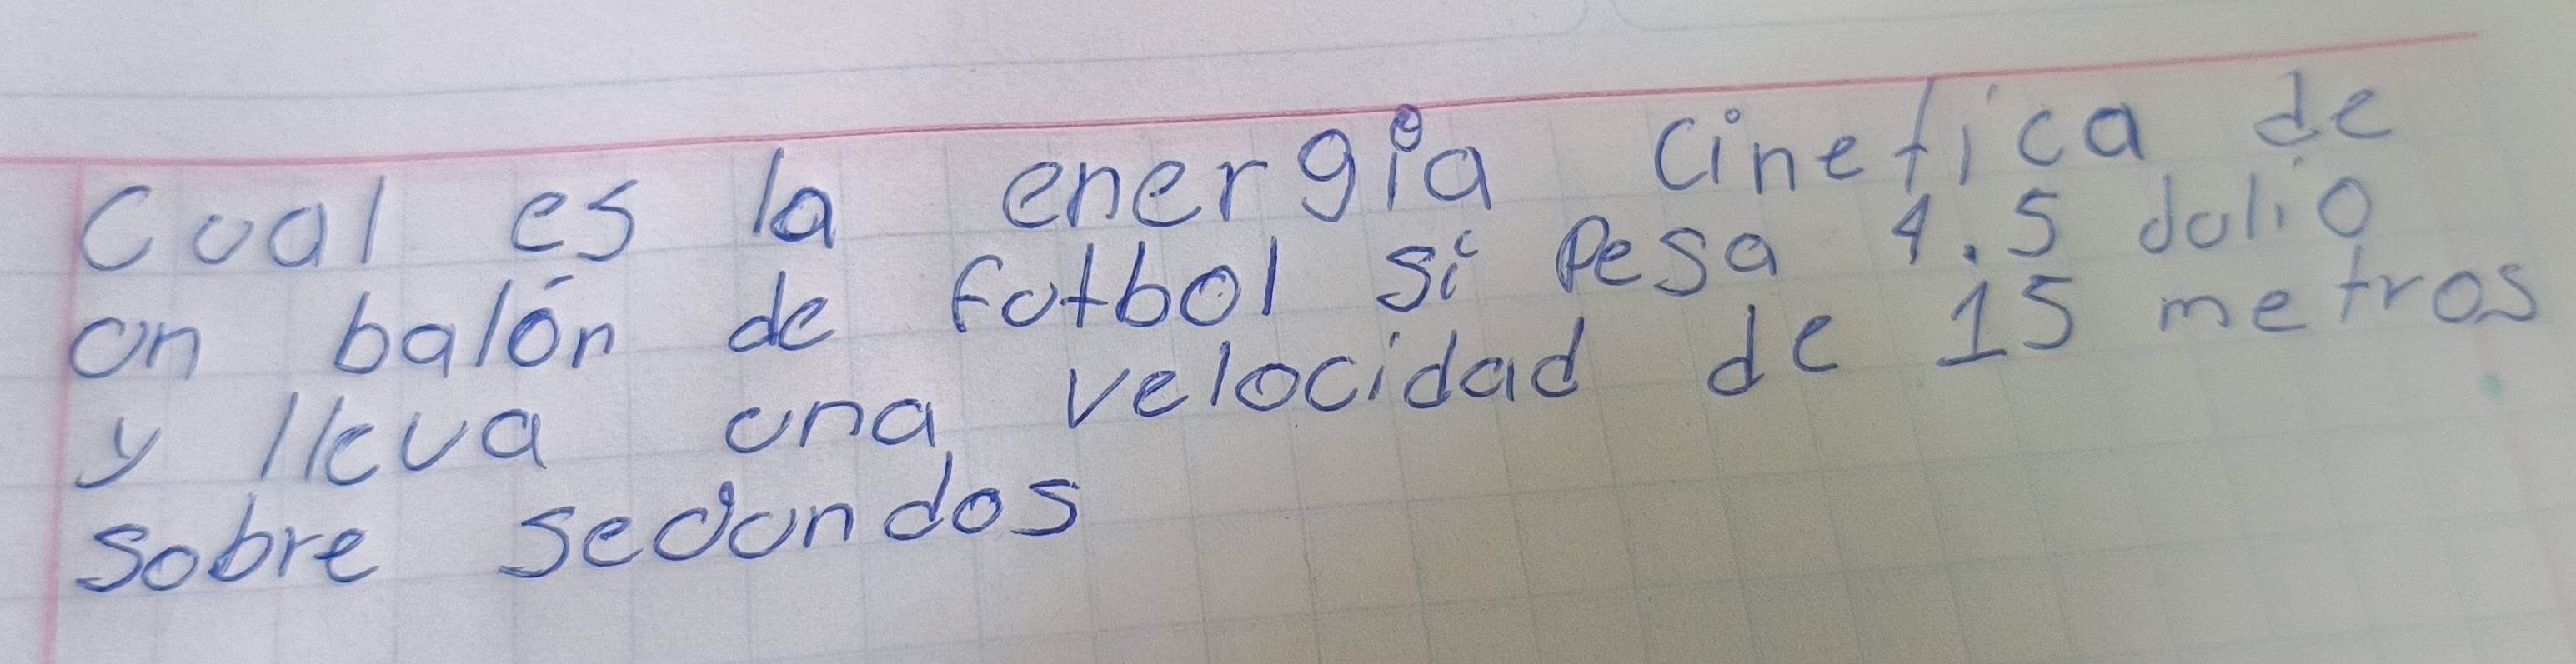 Cual es la energía Cinetica de
un balón de futbol si Pesa 4.5 Julio
y lleva una velocidad de 15 metros
sobre segundos